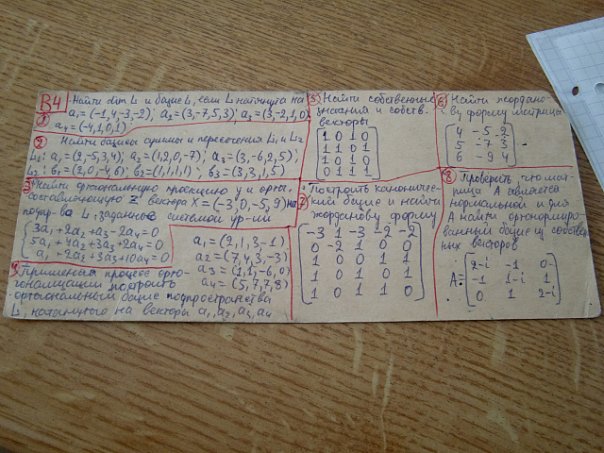 В4
Найти dim L и базис L, если L натянута на
1
a₁=(-1,4,-3,-2); a₂=(3,-7,5,3); a₃=(3,-2,1,0)
a₄=(-4,1,0,1)
2 Найти базисы суммы и пересечения L₁ и L₂
L₁: a₁=(2,-5,3,4); a₂=(1,2,0,-7); a₃=(3,-6,2,5);
L₂: b₁=(2,0,-4,6); b₂=(1,1,1,1); b₃=(3,3,1,5)
3 Найти ортогональную проекцию y и орто.
составляющую z вектора X=(-3,0,-5,9) на
подпр-ва L, заданное системой ур-ий
3a₁+2a₂+a₃-2a₄=0
5a₁+4a₂+3a₃+2a₄=0
a₁+2a₂+3a₃+10a₄=0
4 Применяя процесс орто-
гонализации построить
ортогональный базис подпространства
L, натянутого на векторы a₁, a₂, a₃, a₄
a₁=(2,1,3-1)
a₂=(7,4,3,-3)
a₃=(1,1,-6,0)
a₄=(5,7,7,8)
5 Найти собственные
значения и собств.
векторы
1 0 1 0
1 1 0 1
1 0 1 0
0 1 1 1
6 Найти жордано-
ву форму матрицы
4 -5 2
5 -7 3
6 -9 4
7 Построить каноничес-
кий базис и найти
жорданову форму
-3 1 -3 -2 -2
0 -2 1 0 0
1 0 0 1 1
1 0 1 0 1
1 0 1 1 0
8 Проверить, что мат-
рица A является
нормальной и для
A найти ортонормиро-
ванный базис из собствен-
ных векторов
A=
2-i -1 0
-1 1-i 1
0 1 2-i